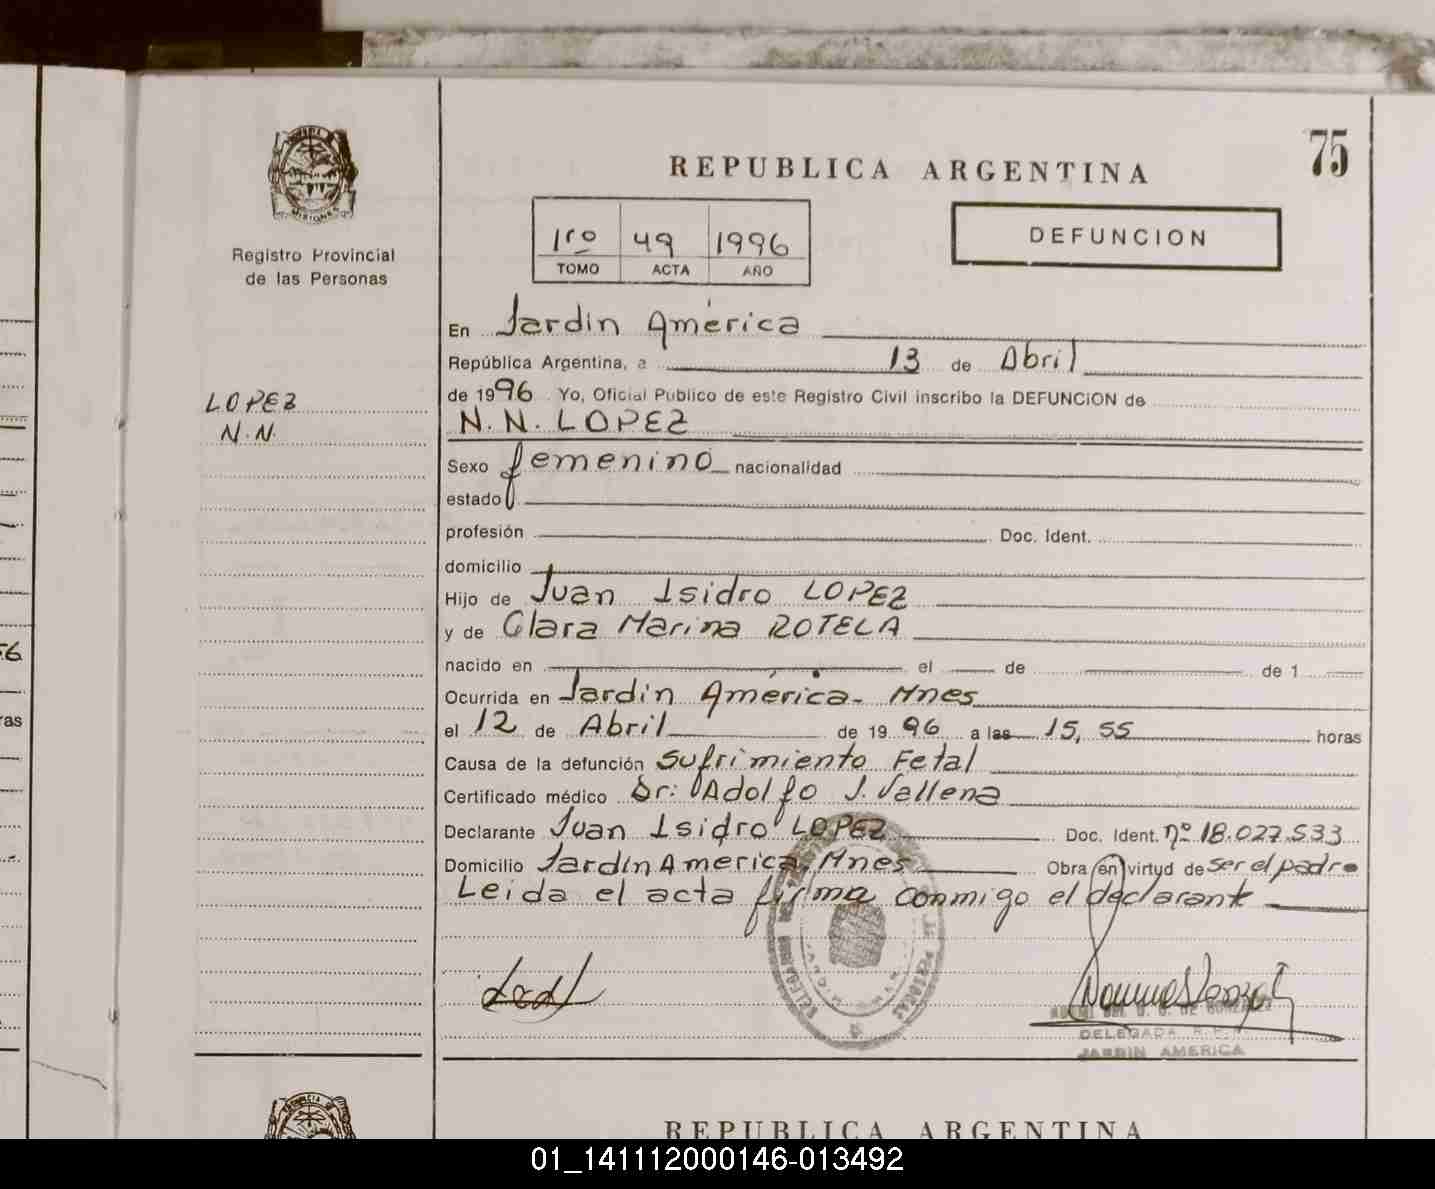 75
REPUBLICA ARGENTINA
MISIONES
Registro Provincial
de las Personas
1ro 49 1996
TOMO ACTA AÑO
DEFUNCION
LOPEZ
N.N.
En Jardin América
República Argentina, a 13 de Abril
de 1996 Yo, Oficial Público de este Registro Civil inscribo la DEFUNCION de
N.N. LOPEZ
Sexo femenino nacionalidad
estado
profesión Doc. Ident.
domicilio
Hijo de Juan Isidro LOPEZ
y de Clara Marina ROTELA
nacido en el de de 1
Ocurrida en Jardin América - Mnes
el 12 de Abril de 1996 a las 15,55 horas
Causa de la defunción Sufrimiento Fetal
Certificado médico Dr: Adolfo J. Vallena
Declarante Juan Isidro LOPEZ Doc. Ident. nº 18.027.533
Domicilio Jardin America, Mnes Obra en virtud de ser el padre
Leida el acta firma conmigo el declarante
DELEGADA R.P.
JARDIN AMERICA
REPUBLICA ARGENTINA
01_141112000146-013492